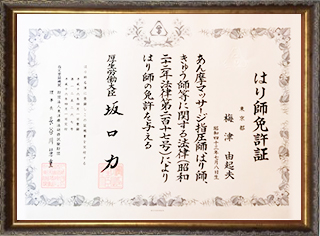 はり師免許証
東京都
梅津 由起夫
昭和四十三年七月八日生
あん摩マッサージ指圧師、はり師、
きゅう師等に関する法律(昭和
二十二年法律第二百十七号)により
はり師の免許を与える
厚生労働大臣 坂口力